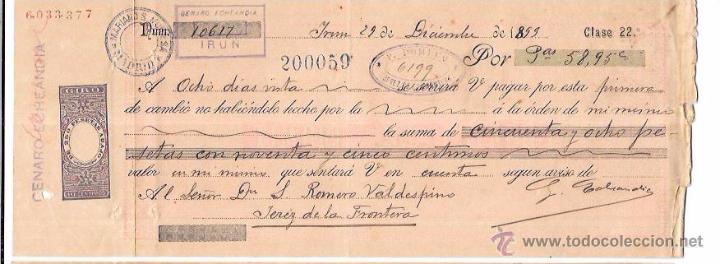 6.033.377
GENARO ECHEANDIA
GIRO
MARIANO S.
MADRID
Núm. 10617
GENARO ECHEANDIA
IRUN
Irun 29 de Diciembre de 1899 Clase 22.ª
200059
6199
Por Ptas 58,95 c
A Ocho dias vista se servirá V pagar por esta primera
de cambio no habiéndolo hecho por la a la órden de mi mismo
la suma de cincuenta y ocho pe-
setas con noventa y cinco centimos
valor en mi mismo que sentará V en cuenta segun aviso de
Al Señor Dn S. Romero Valdespino G. Echeandia
Jeréz de la Frontera
todocoleccion
www.todocoleccion.net